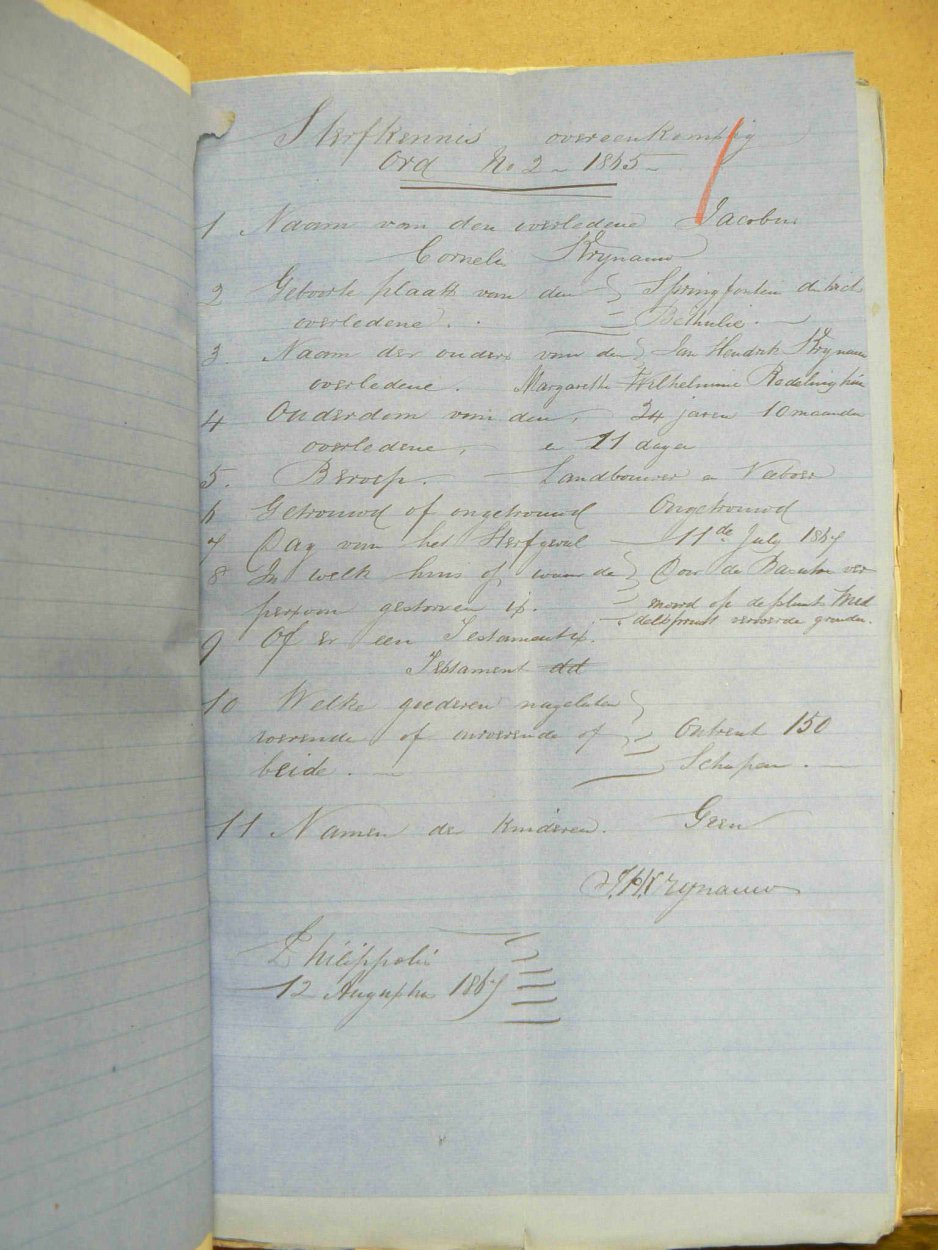 Sterfkennis overeenkomstig
Ord No 2 - 1865 -
1 Naam van den overledene Jacobus
Cornelis Krynauw
2 Geboorte plaats van den Springfontein district
overledene. Bethulie.
3. Naam der ouders van den Jan Hendrik Krynauw
overledene. Margaretha Wilhelmina
4 Ouderdom van den, 24 jaren 10 maanden
overledene, en 11 dagen
5. Beroep. Landbouwer en Veeboer
6 Getrouwd of ongetrouwd Ongetrouwd
7 Dag van het Sterfgeval 11de July 1867
8 In welk huis of waar de Door de Basutos ver
persoon gestorven is. moord op de plaats
veroverde gronden.
9 Of er een Testament is.
Testament dd
10 Welke goederen nagelaten
roerende of onroerende of Ontrent 150
beide. Schapen.
11 Namen der kinderen. Geen
J.H. Krynauw
Philippolis
12 Augustus 1867